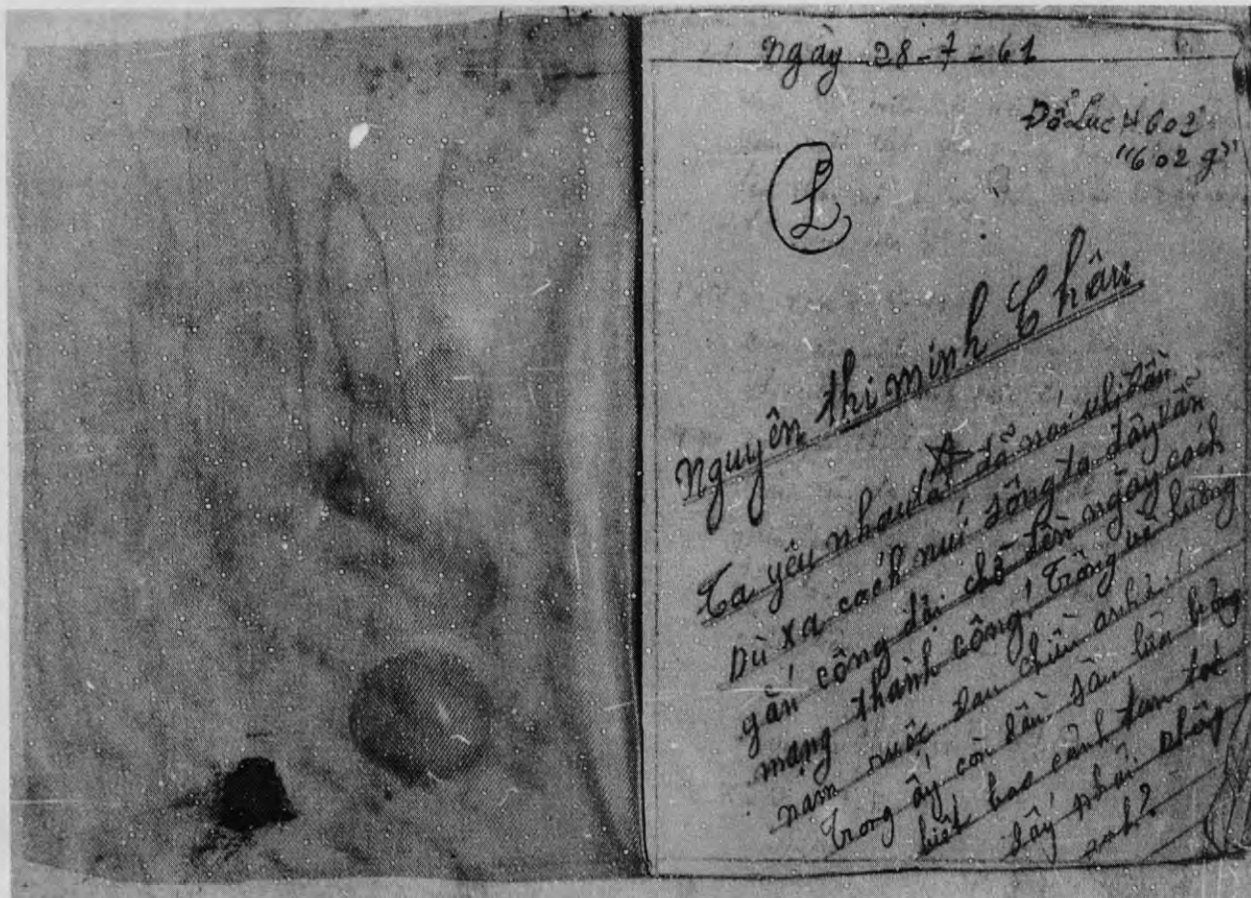 Ngày 28-7-61
Đỗ Lực H 602
"602 g"
L
Nguyên thị minh Châu
Ta yêu nhau đã nói khi
Dù xa cách núi sông ta đây vẫn
gắn công đợi chờ đến ngày cách
mạng thành công! Trông về hướng
nam nước anh!
Trong ấy còn dân
biết bao cảnh tan tóc
lấy phải không
anh?